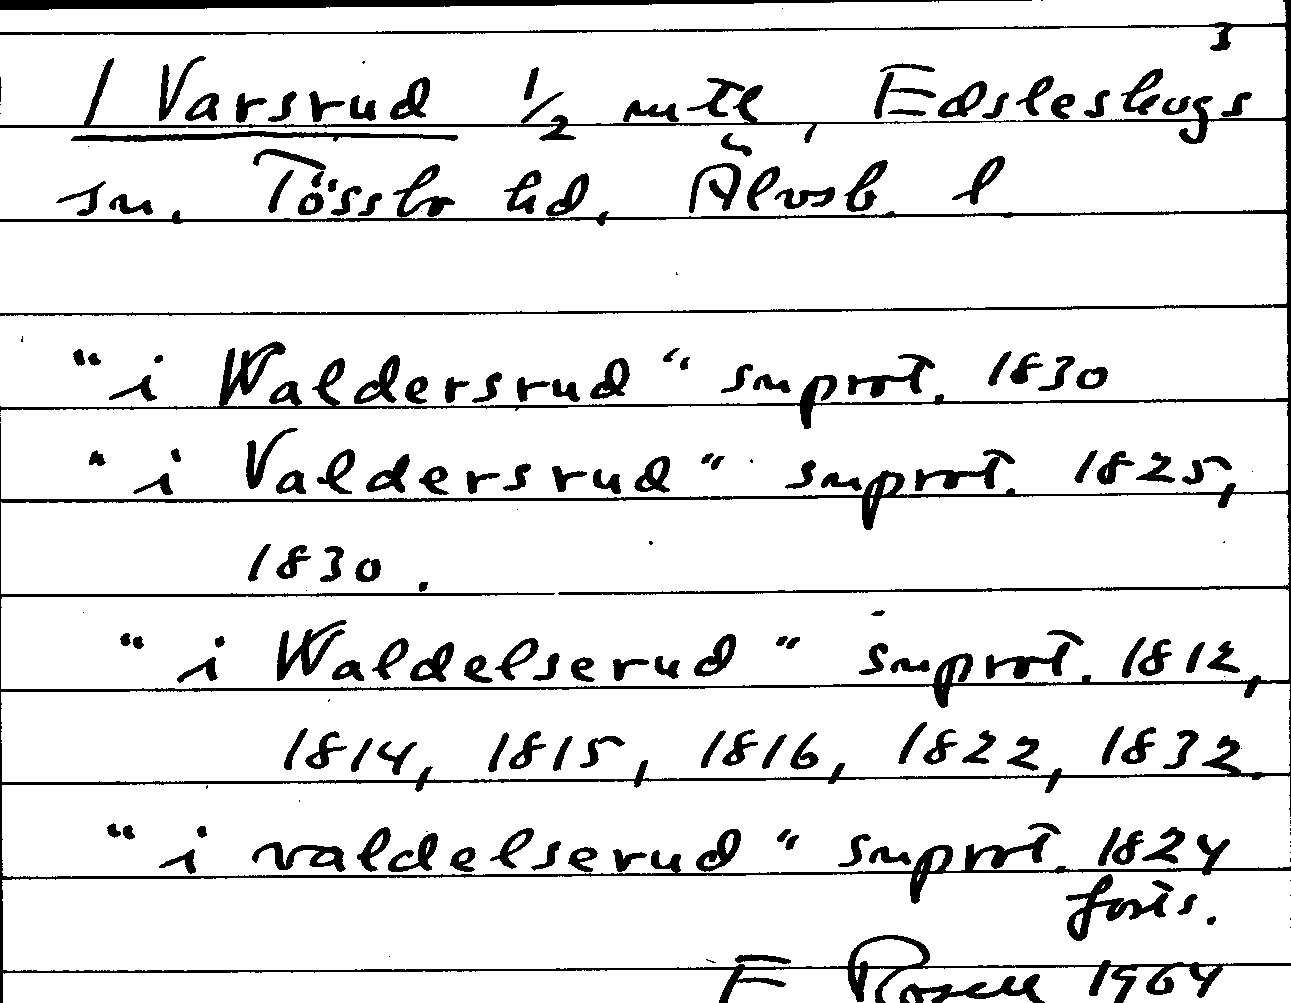 3
1 Varsrud 1/2 mtl, Edsleskogs
sn. Tössbo hd. Älvsb. l.
"i Waldersrud" snprot. 1830
"i Valdersrud" snprot. 1825,
1830.
"i Waldelserud" snprot. 1812,
1814, 1815, 1816, 1822, 1832.
"i valdelserud" snprot. 1824
forts.
E Rosell 1964